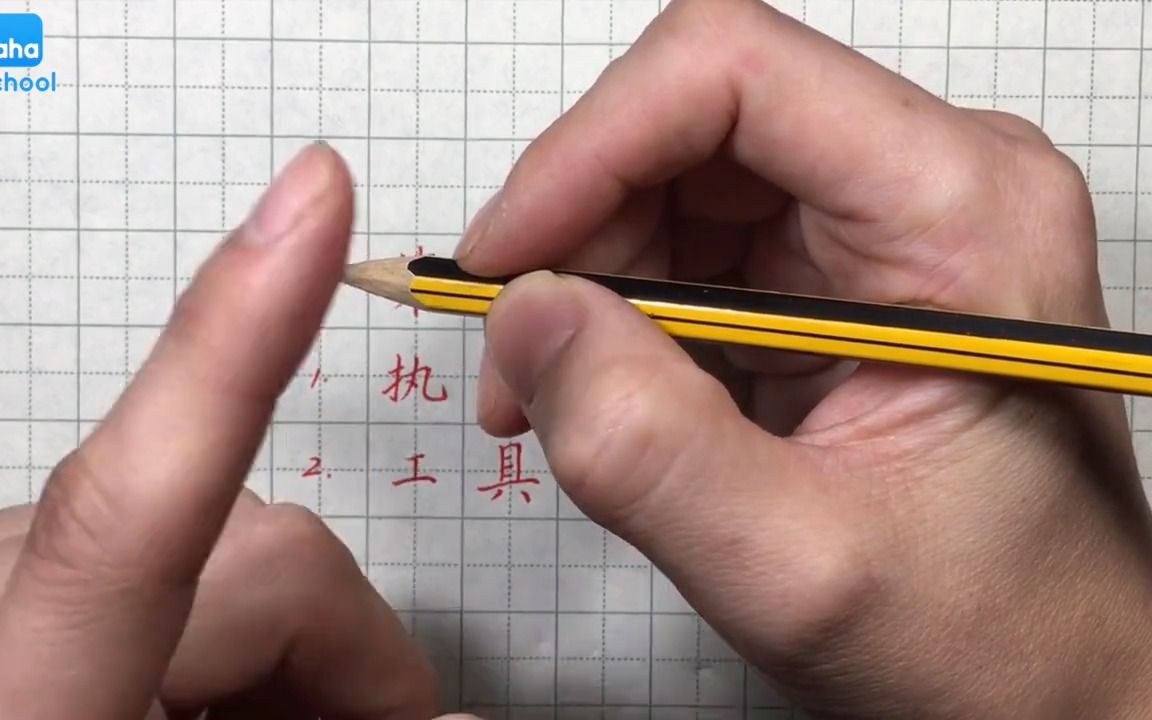 aha
chool
1. 执
2. 工具